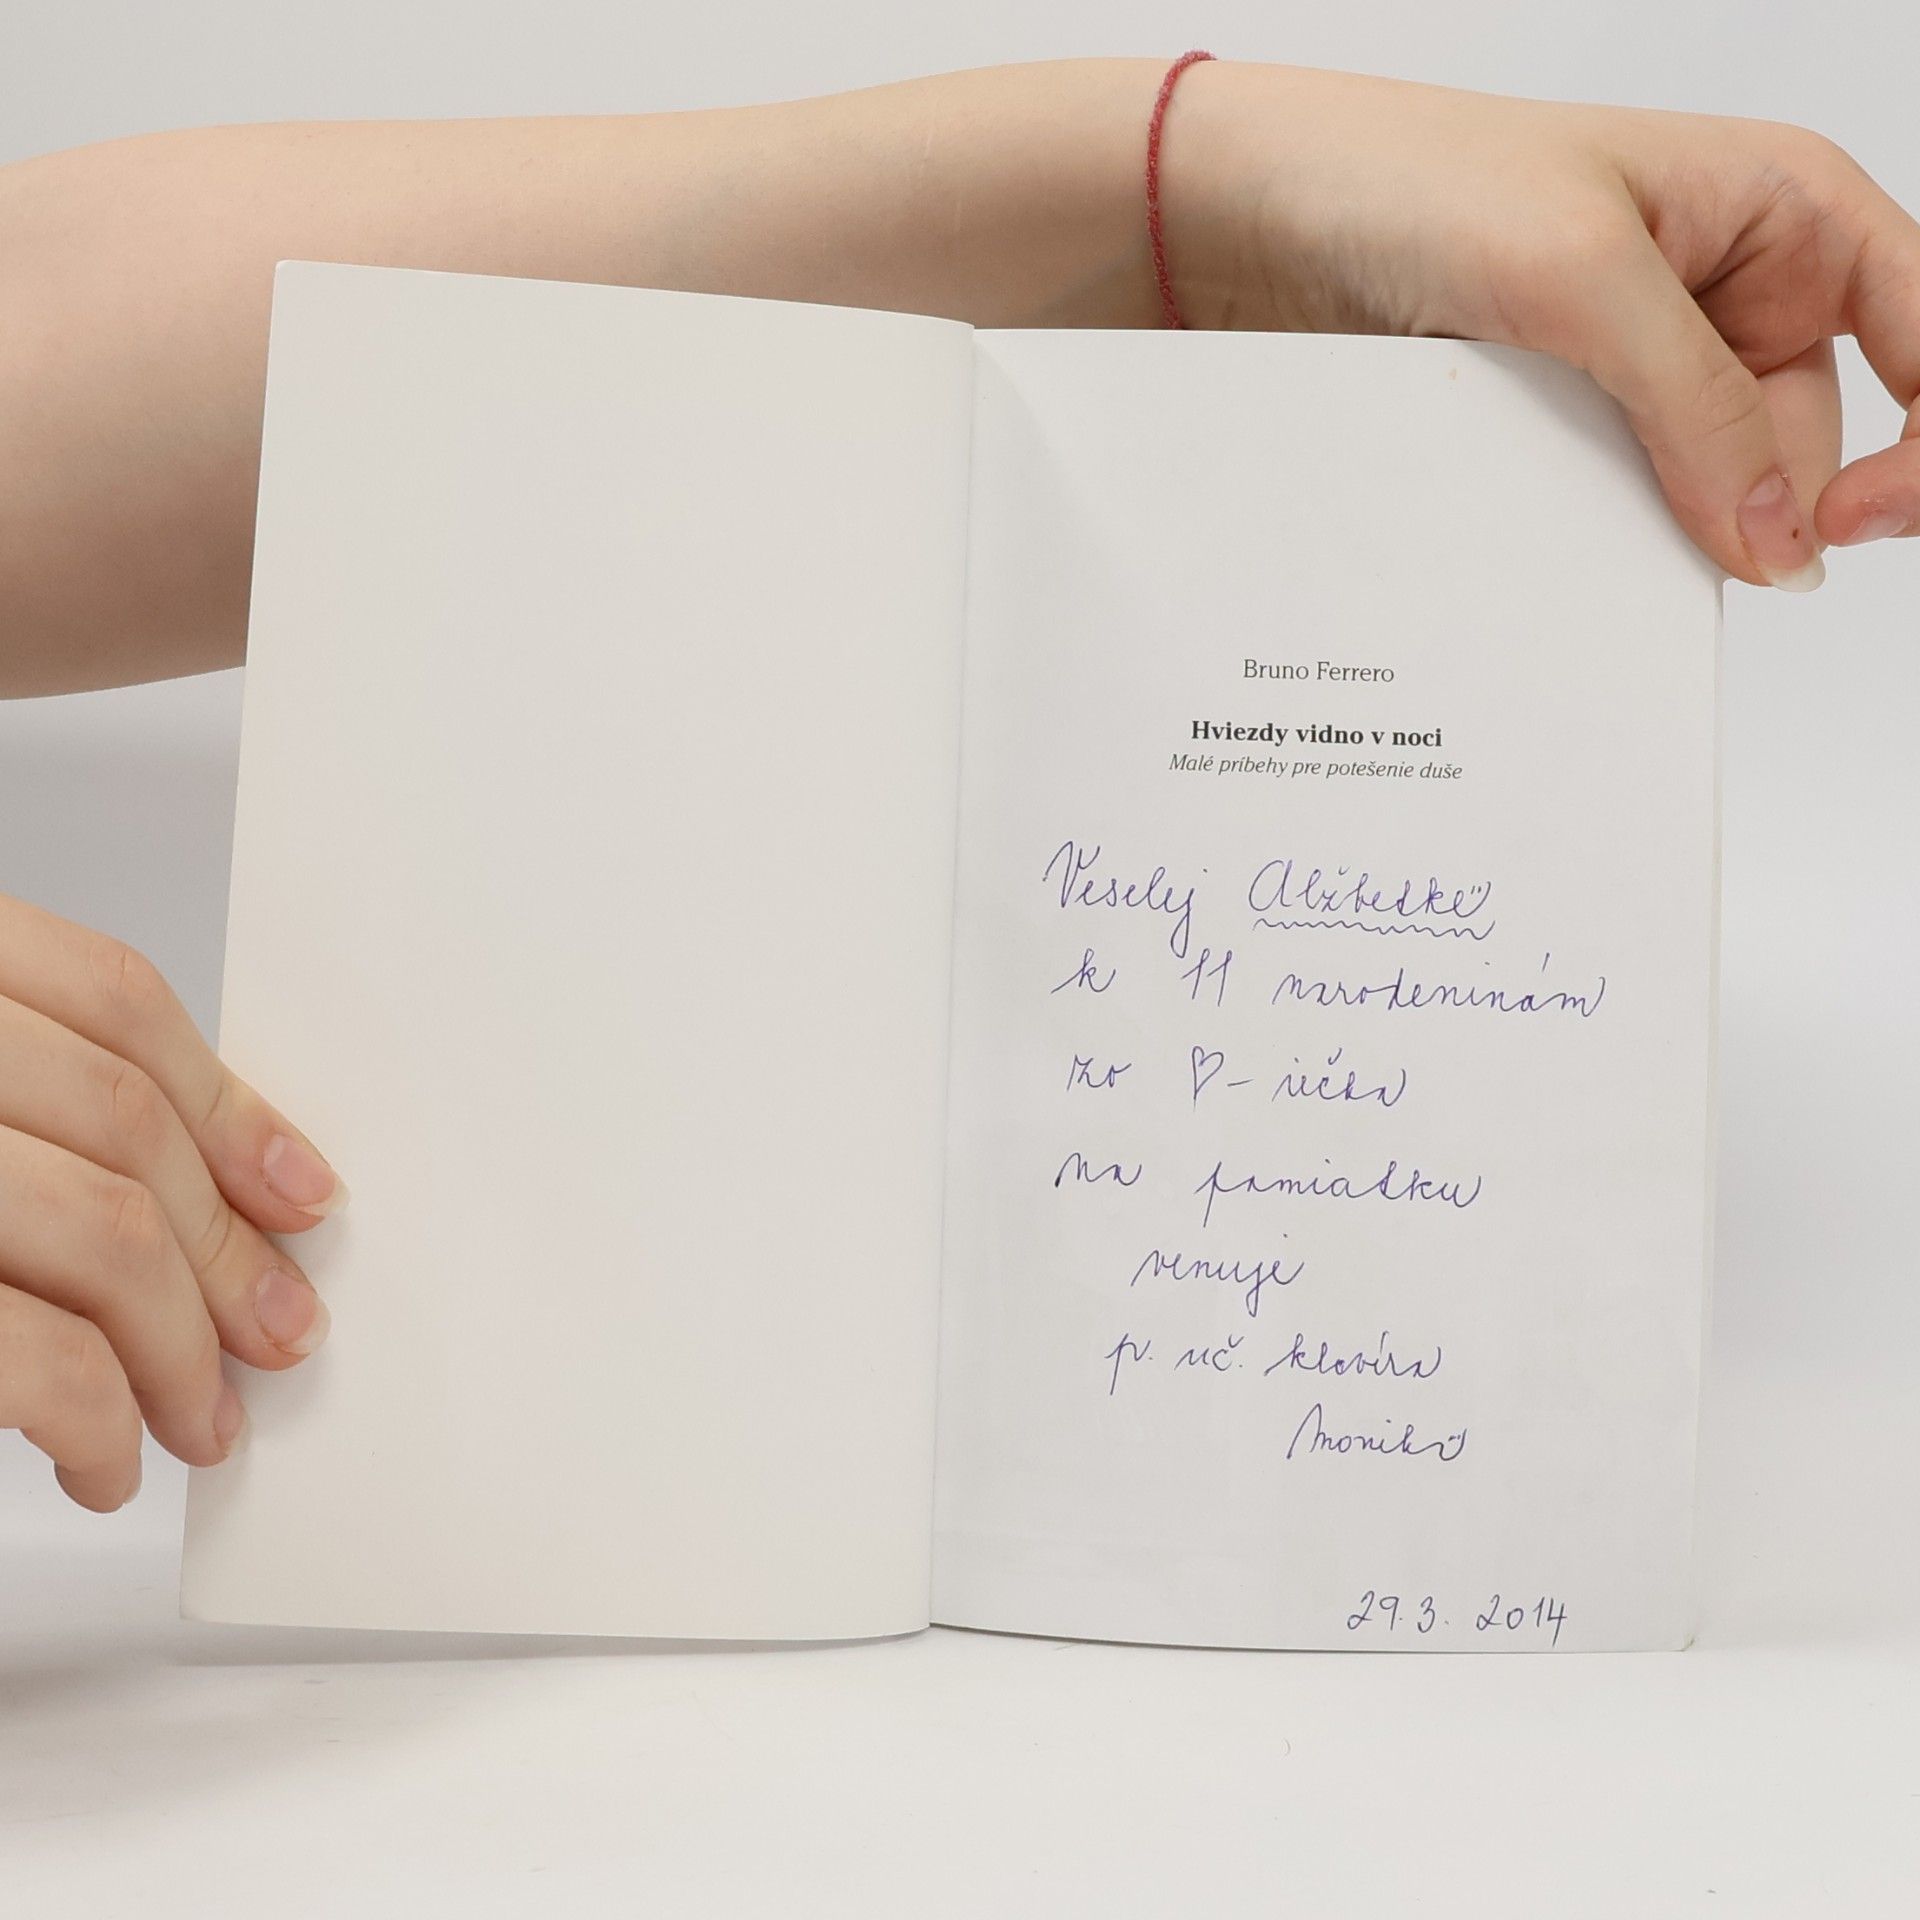 Bruno Ferrero
Hviezdy vidno v noci
Malé príbehy pre potešenie duše
Veselej Alžbetke
k 11 narodeninám
zo ♡ - iečka
na pamiatku
venuje
p. uč. klavíra
Monika
29.3. 2014